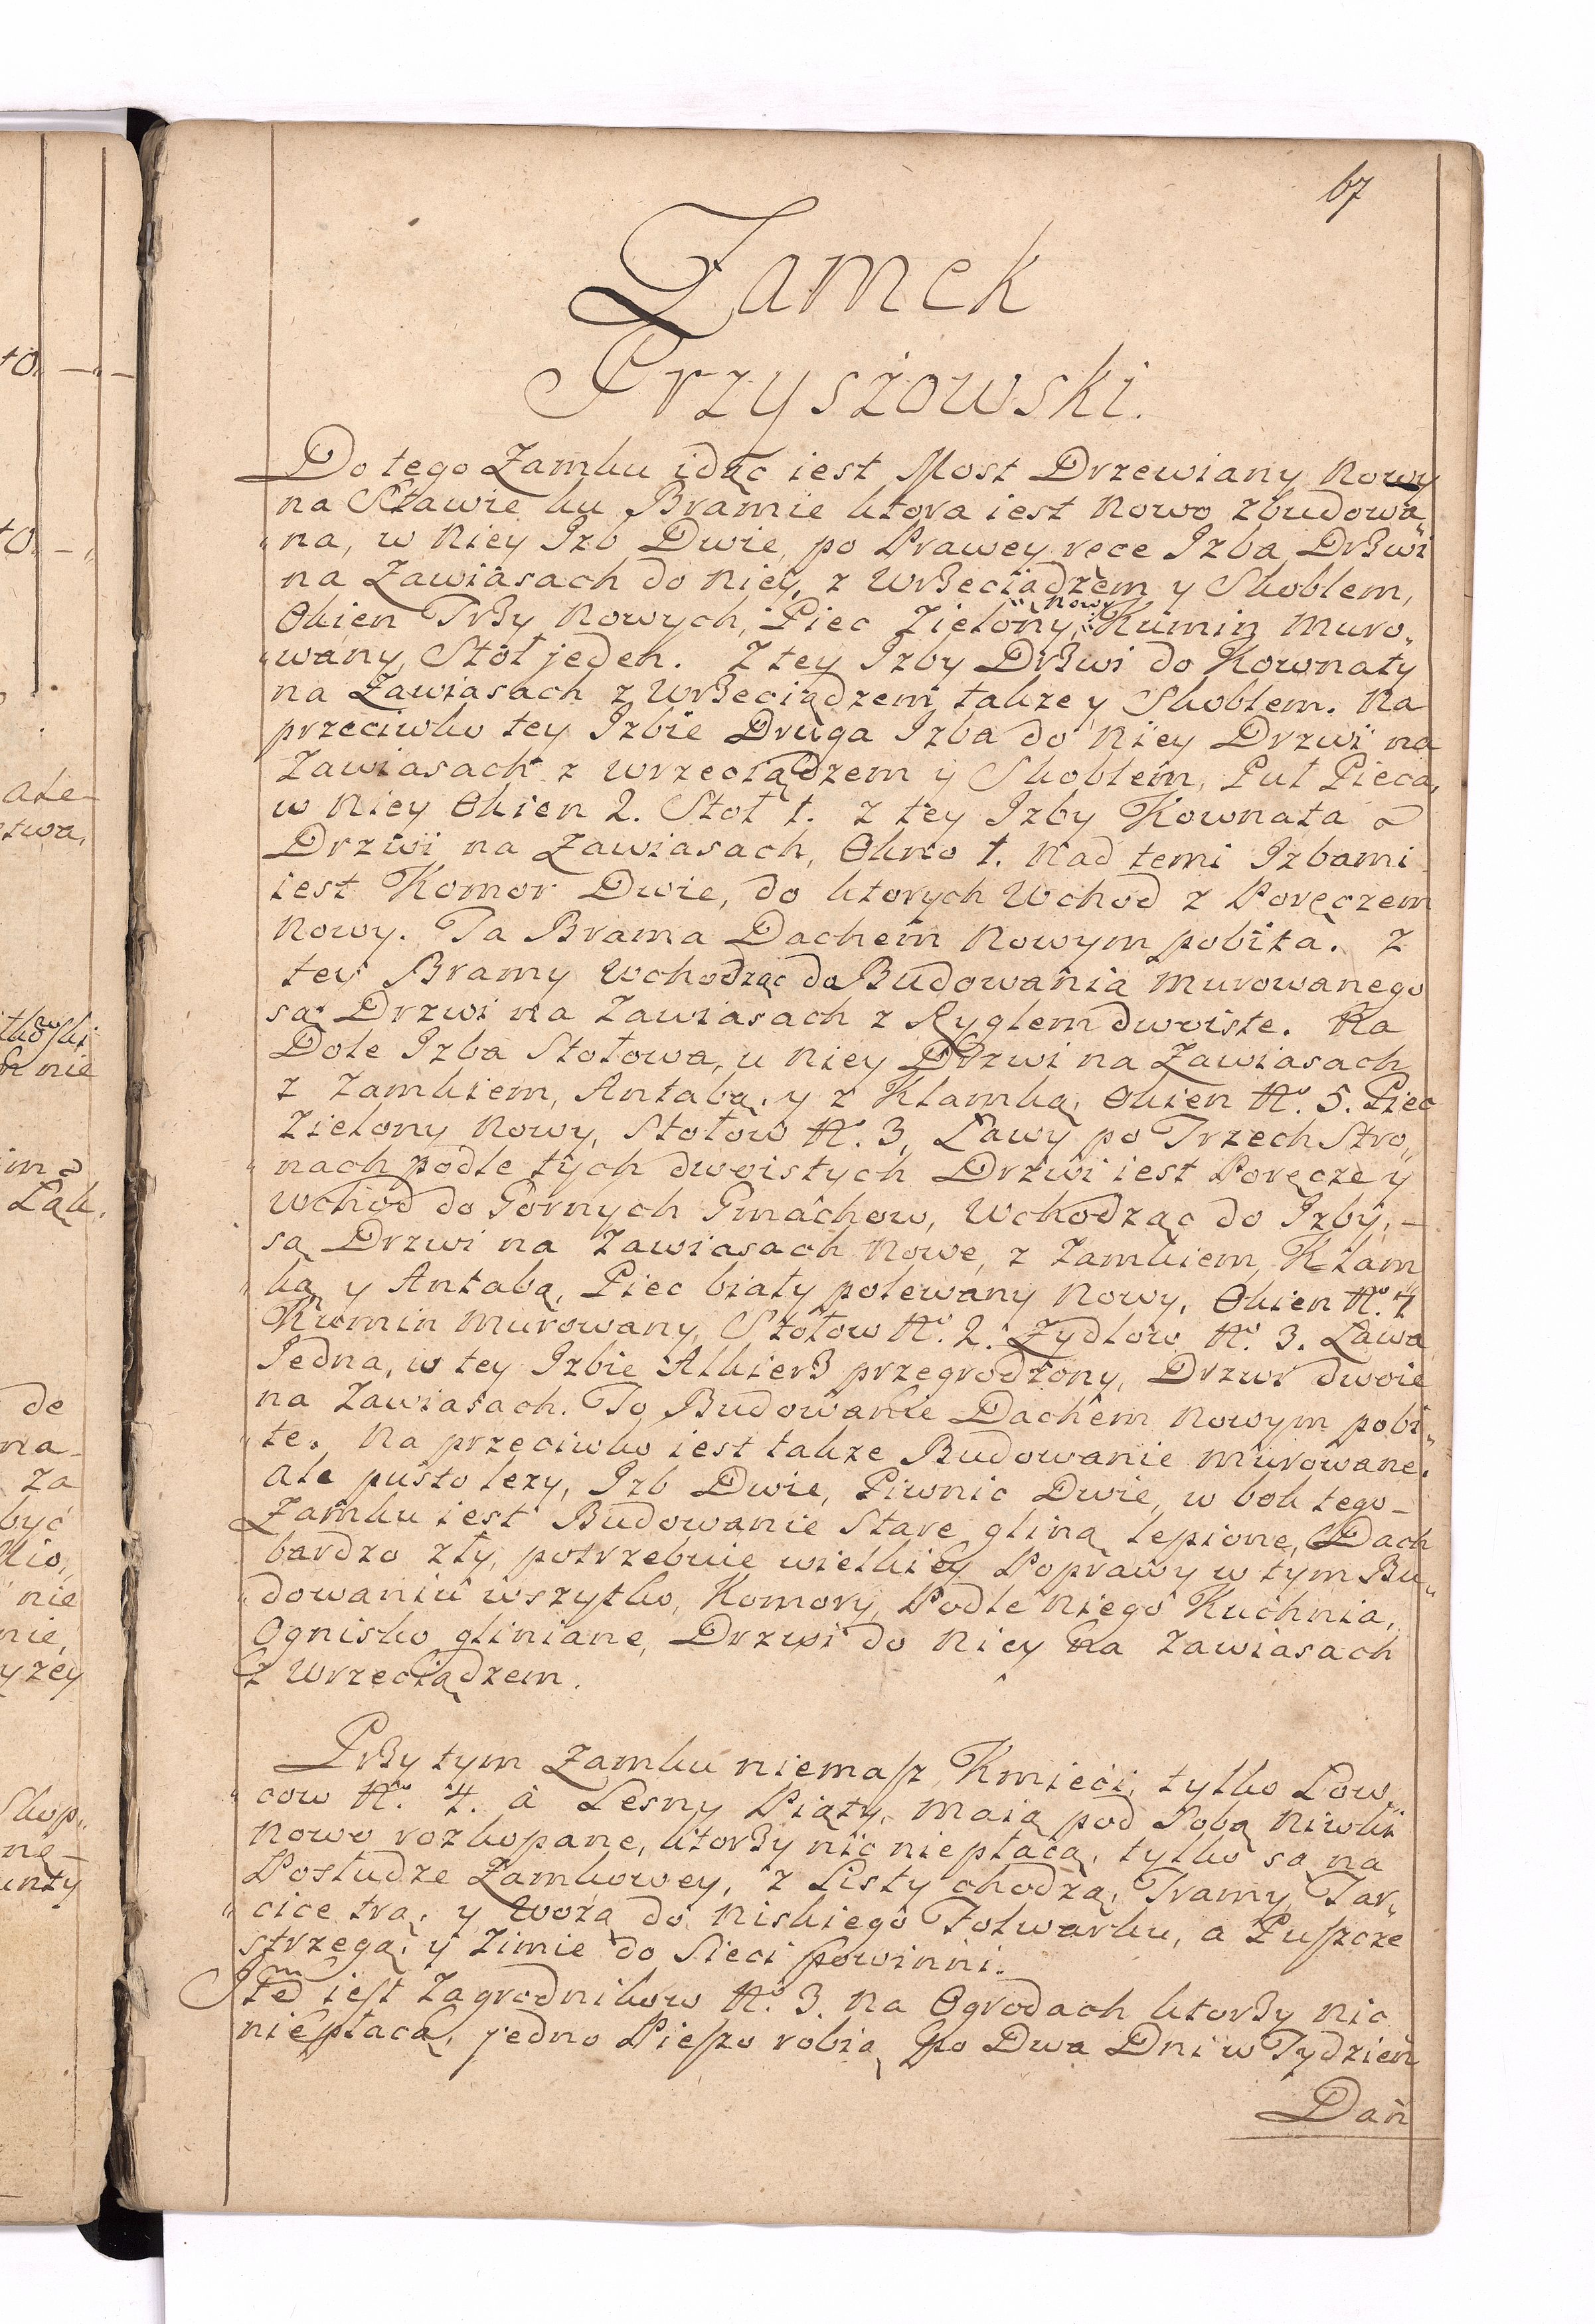 67
Zamek
Przyszowski.
Do tego Zamku idąc iest Most Drzewiany Nowy
na Stawie ku Bramie ktora iest Nowo Zbudowa„
„na, w Niey Izb Dwie, po Prawey rece Izba, Drzwi
na Zawiasach do Niey, z Wrzeciądzem y Skoblem,
Okien Trzy Nowych, Piec Zielony, Nowy Kumin Muro„
„wany, Stół jeden. Z tey Izby Drzwi do Kownaty
na Zawiasach z Wrzeciądzem także y Skoblem. Na
przeciwko tey Izbie Druga Izba do Niey Drzwi na
Zawiasach z wrzeciądzem y Skoblem, Puł Pieca,
w Niey Okien 2. Stoł 1. z tey Izby Kownata
Drzwi na Zawiasach, Okno 1. Nad temi Izbami
iest Komor Dwie, do ktorych Wchod z Poręczem
Nowy. Ta Brama Dachem Nowym pobita. Z
tey Bramy Wchodząc do Budowania murowanego
są Drzwi na Zawiasach z Ryglem dwoiste. Na
Dole Izba Stołowa, u Niey Drzwi na Zawiasach
z Zamkiem, Antabą, y z Klamką, Okien No. 5. Piec
Zielony Nowy, Stołow No. 3, Ławy po Trzech Stro„
„nach podle tych dwoistych Drzwi iest Poręcze y
Wchod do Gornych Gmachow, Wchodząc do Izby, –
są Drzwi na Zawiasach Nowe, z Zamkiem, Klam
„ką y Antabą, Piec biały polewany Nowy, Okien No. 4
Kumin Murowany, Stołow No. 2. Zydlow No. 3. Ława
Jedna, w tey Izbie Alkierz przegrodzony, Drzwi dwoie
na Zawiasach. To Budowanie Dachem Nowym pobi„
„te. Na przeciwko iest także Budowanie murowane.
Ale pusto leży, Izb Dwie, Piwnic Dwie, w bok tego –
Zamku iest Budowanie Stare gliną lepione, Dach
bardzo zły, potrzebuie wielkiey Poprawy w tym Bu„
„dowaniu wszytko, Komory, Podle Niego Kuchnia,
Ognisko gliniane, Drzwi do Niey Na Zawiasach
z Wrzeciądzem.
Przy tym Zamku niemasz Kmieci, tylko Łow„
„cow No. 4. à Lesny Piąty, Maią pod Sobą Niwki
Nowo rozkopane, ktorzy nic nie płacą, tylko są na
Posłudze Zamkowey, z Listy chodzą, Tramy Tar„
„cice trą, y Wożą do Niskiego Folwarku, a Puszcze
strzegą, y Zimie do Sieci powinni.
Itē iest Zagrodnikow No. 3. Na Ogrodach ktorzy nic
niepłacą, jedno Pieszo robią po Dwa Dni w Tydzień
Dań